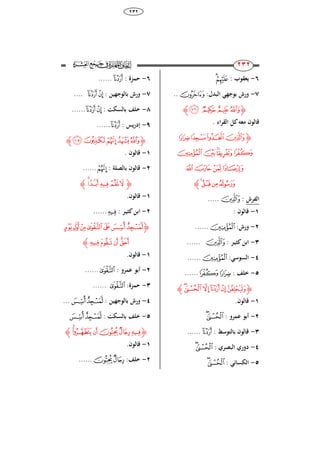 ٢٣٢
٢٣٢
٦- يعقوب : عَلَيْهُمْ
٧- ورش بوجهي البدل: وَءَاخَرُونَ ..
﴿ وَاللَّهُ عَلِيمٌ حَكِيمٌ ١٠٦ ﴾
قالون معه كل القراء .
﴿ وَالَّذِينَ اتَّخَذُوا مَسْجِدًا ضِرَارًا
وَكُفْرًا وَتَفْرِيقًا بَيْنَ الْمُؤْمِنِينَ
وَإِرْصَادًا لِمَنْ حَارَبَ اللَّهَ
وَرَسُولَهُ مِنْ قَبْلُ ﴾
الفرش : وَالَّذِينَ ......
١- قالون :
٢- ورش: الْمُؤْمِنِينَ ......
٣- ابن كثير : وَالَّذِينَ ......
٤- السوسي: الْمُؤْمِنِينَ ......
٥- خلف : ضِرَارًا وَكُفْرًا ......
﴿ وَلَيَحْلِفُنَّ إِنْ أَرَدْنَا إِلَّا الْحُسْنَى ﴾
١- قالون.
٢- أبو عمرو : الْحُسْنَى
٣- قالون بالتوسط : أَرَدْنَا ......
٤- دوري البصري : الْحُسْنَى
٥- الكسائي : الْحُسْنَى
٦- حمزة : إِنْ أَرَدْنَا ......
٧- ورش بالوجهين : إِنْ أَرَدْنَا ....
٨- خلف بالسكت : إِنْ أَرَدْنَا ......
٩- إدريس : أَرَدْنَا ......
﴿ وَاللَّهُ يَشْهَدُ إِنَّهُمْ لَكَاذِبُونَ ١٠٧ ﴾
١- قالون .
٢- قالون بالصلة : إِنَّهُمْ ......
﴿ لَا تَقُمْ فِيهِ أَبَدًا ﴾
١- قالون.
٢- ابن كثير : فِيهِ ......
﴿ لَمَسْجِدٌ أُسِّسَ عَلَى التَّقْوَى مِنْ أَوَّلِ يَوْمٍ
أَحَقُّ أَنْ تَقُومَ فِيهِ ﴾
١- قالون.
٢- أبو عمرو : التَّقْوَى ......
٣- حمزة: التَّقْوَى ......
٤- ورش بالوجهين : لَمَسْجِدٌ أُسِّسَ ...
٥- خلف بالسكت : لَمَسْجِدٌ أُسِّسَ
﴿ فِيهِ رِجَالٌ يُحِبُّونَ أَنْ يَتَطَهَّرُوا ﴾
١- قالون.
٢- خلف: رِجَالٌ يُحِبُّونَ ......